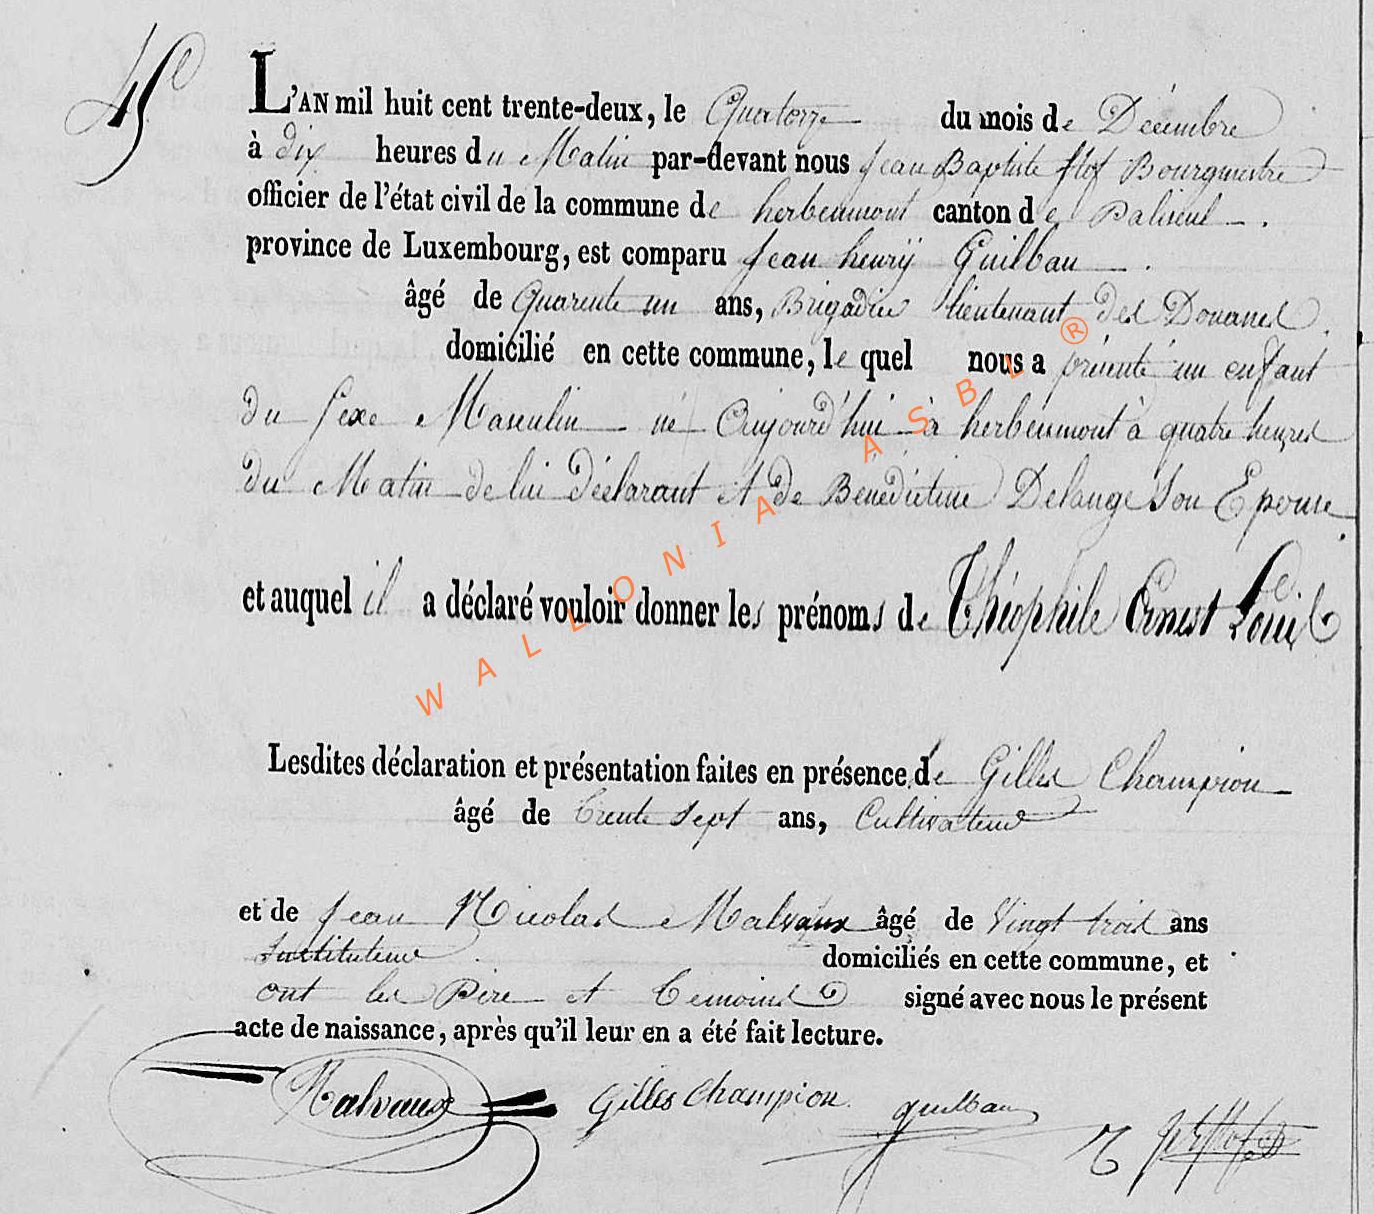 45e
L'AN mil huit cent trente-deux, le Quatorze du mois de Décembre
à dix heures du Matin par-devant nous Jean Baptiste flof Bourgmestre
officier de l'état civil de la commune de herbeumont canton de Paliseul
province de Luxembourg, est comparu Jean henrÿ Guilbau
âgé de Quarente un ans, Brigadier lieutenant des Douanes
domicilié en cette commune, le quel nous a présenté un enfant
du Sexe Masculin né Aujourd'hui à herbeumont à quatre heures
du Matin de lui déclarant et de Bénédictine Delange Son Epouse
et auquel il a déclaré vouloir donner les prénoms de Théophile Ernest Louis
WALLONIA ASBL ®
Lesdites déclaration et présentation faites en présence de Gilles Champion
âgé de trente Sept ans, Cultivateur
et de Jean Nicolas Malvaux âgé de Vingt trois ans
Instituteur domiciliés en cette commune, et
ont les Père et Témoins signé avec nous le présent
acte de naissance, après qu'il leur en a été fait lecture.
Malvaux Gilles Champion guilbau